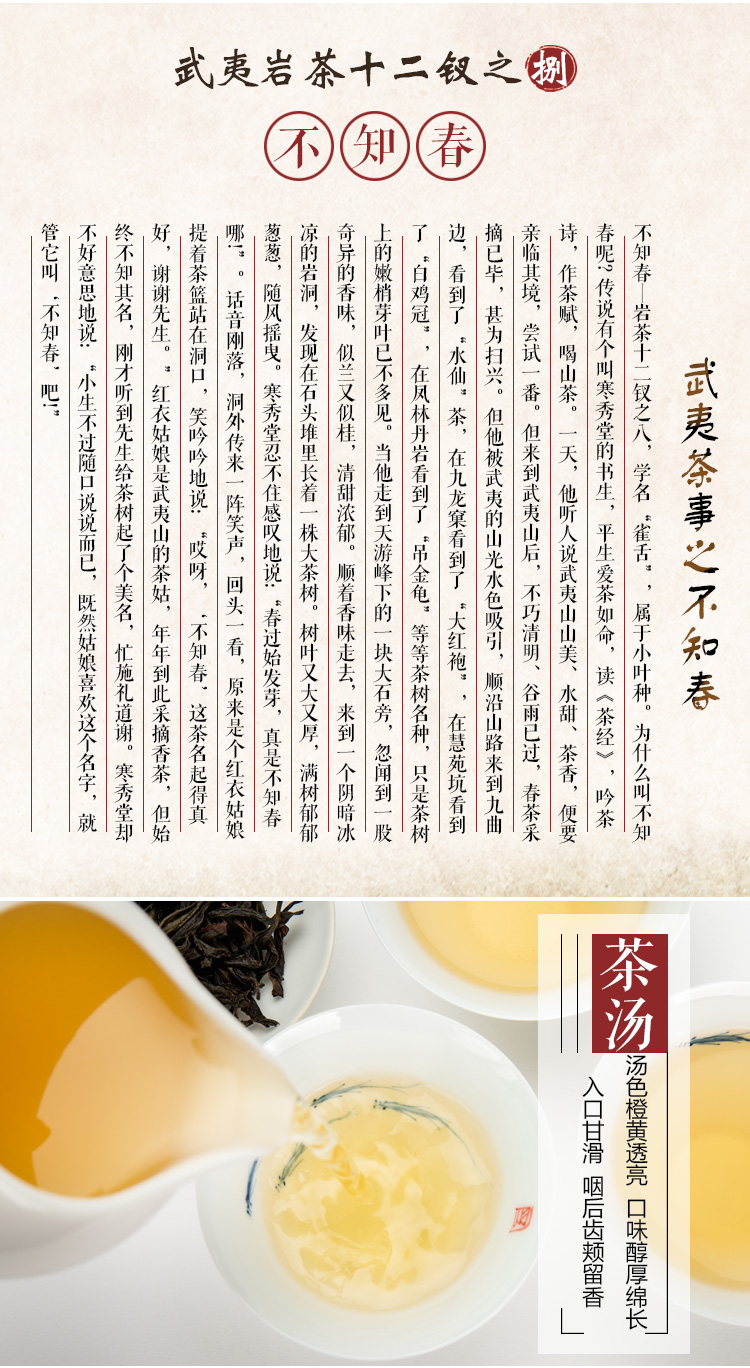 武夷岩茶十二钗之捌
不知春
武夷茶事之不知春
不知春—岩茶十二钗之八，学名“雀舌”，属于小叶种。为什么叫不知
春呢？传说有个叫寒秀堂的书生，平生爱茶如命，读《茶经》，吟茶
诗，作茶赋，喝山茶。一天，他听人说武夷山山美、水甜、茶香，便要
亲临其境，尝试一番。但来到武夷山后，不巧清明、谷雨已过，春茶采
摘已毕，甚为扫兴。但他被武夷的山光水色吸引，顺沿山路来到九曲
边，看到了“水仙”茶，在九龙窠看到了“大红袍”，在慧苑坑看到
了“白鸡冠”，在凤林丹岩看到了“吊金龟”等等茶树名种，只是茶树
上的嫩梢芽叶已不多见。当他走到天游峰下的一块大石旁，忽闻到一股
奇异的香味，似兰又似桂，清甜浓郁。顺着香味走去，来到一个阴暗冰
凉的岩洞，发现在石头堆里长着一株大茶树。树叶又大又厚，满树郁郁
葱葱，随风摇曳。寒秀堂忍不住感叹地说：“春过始发芽，真是不知春
哪！”。话音刚落，洞外传来一阵笑声，回头一看，原来是个红衣姑娘
提着茶篮站在洞口，笑吟吟地说：“哎呀，‘不知春’这茶名起得真
好，谢谢先生。”红衣姑娘是武夷山的茶姑，年年到此采摘香茶，但始
终不知其名，刚才听到先生给茶树起了个美名，忙施礼道谢。寒秀堂却
不好意思地说：“小生不过随口说说而已，既然姑娘喜欢这个名字，就
管它叫‘不知春’吧！”
茶汤
汤色橙黄透亮 口味醇厚绵长
入口甘滑 咽后齿颊留香